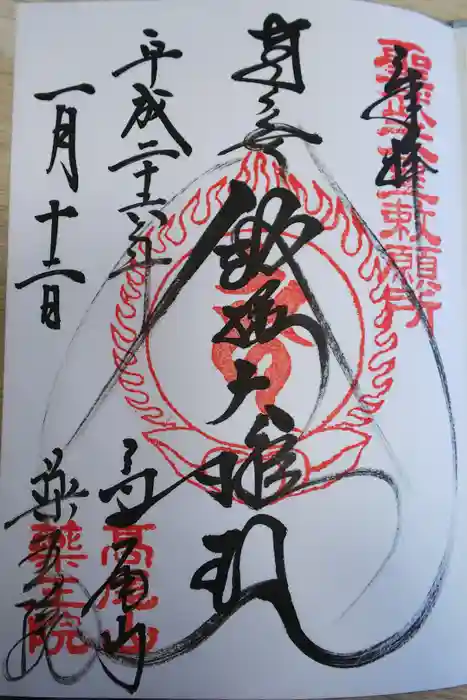 奉拝
聖武天皇敕願所
飯縄大権現
平成二十六年
一月十二日
高尾山
薬王院
高尾山
薬王院